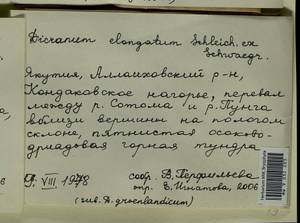 Dicranum elongatum Schleich. ex
Schwaegr.
Якутия, Аллаиховский р-н,
Кондаковское нагорье, перевал
между р. Сотома и р. Пунга
вблизи вершины на пологом
склоне, пятнистая осоково-
дриадовая горная тундра
9. VIII 1978 собр. В. Перфильева
опр. Е. Игнатова, 2006
(sub. D. groenlandicum)